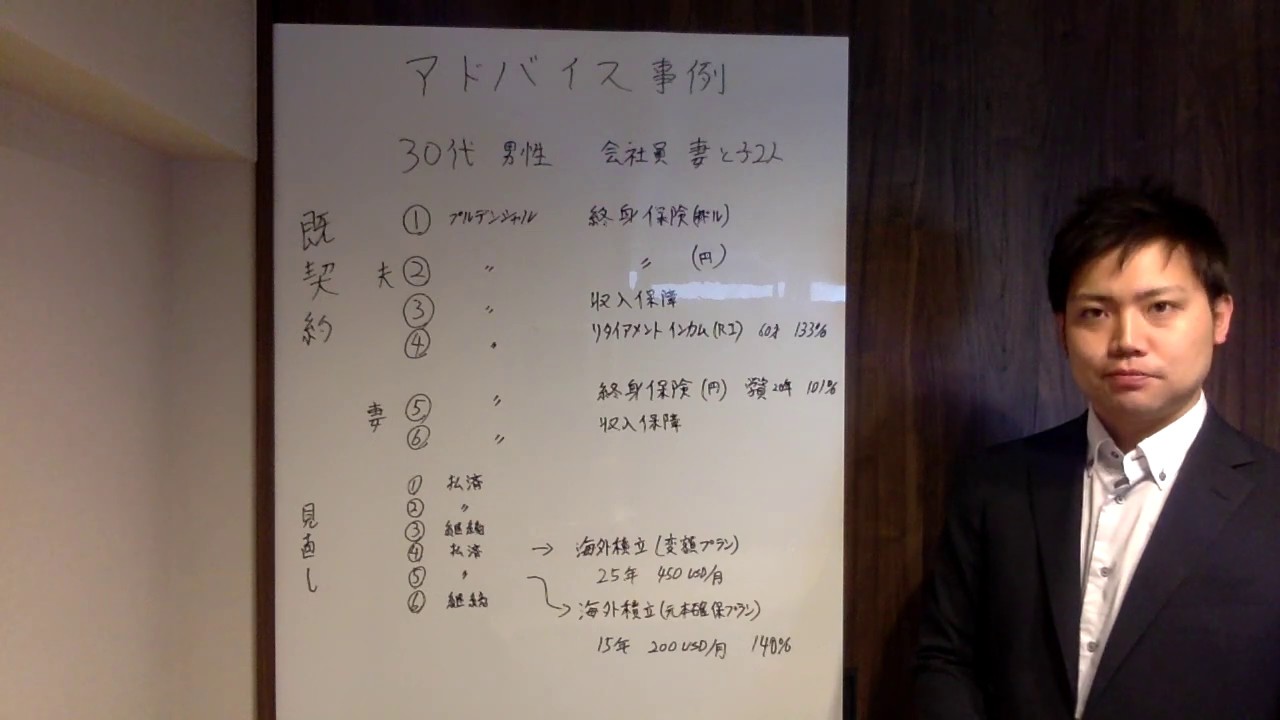 アドバイス事例
30代 男性 会社員 妻と子2人
既契約
夫
① プルデンシャル 終身保険(米ドル)
② 〃 〃 (円)
③ 〃 収入保障
④ 〃 リタイアメントインカム(RI) 60才 133%
妻
⑤ 〃 終身保険(円) 学資 20年 101%
⑥ 〃 収入保障
見直し
① 払済
② 〃
③ 継続
④ 払済 → 海外積立(変額プラン)
⑤ 〃 25年 450USD/月
⑥ 継続 → 海外積立(元本確保プラン)
15年 200USD/月 140%